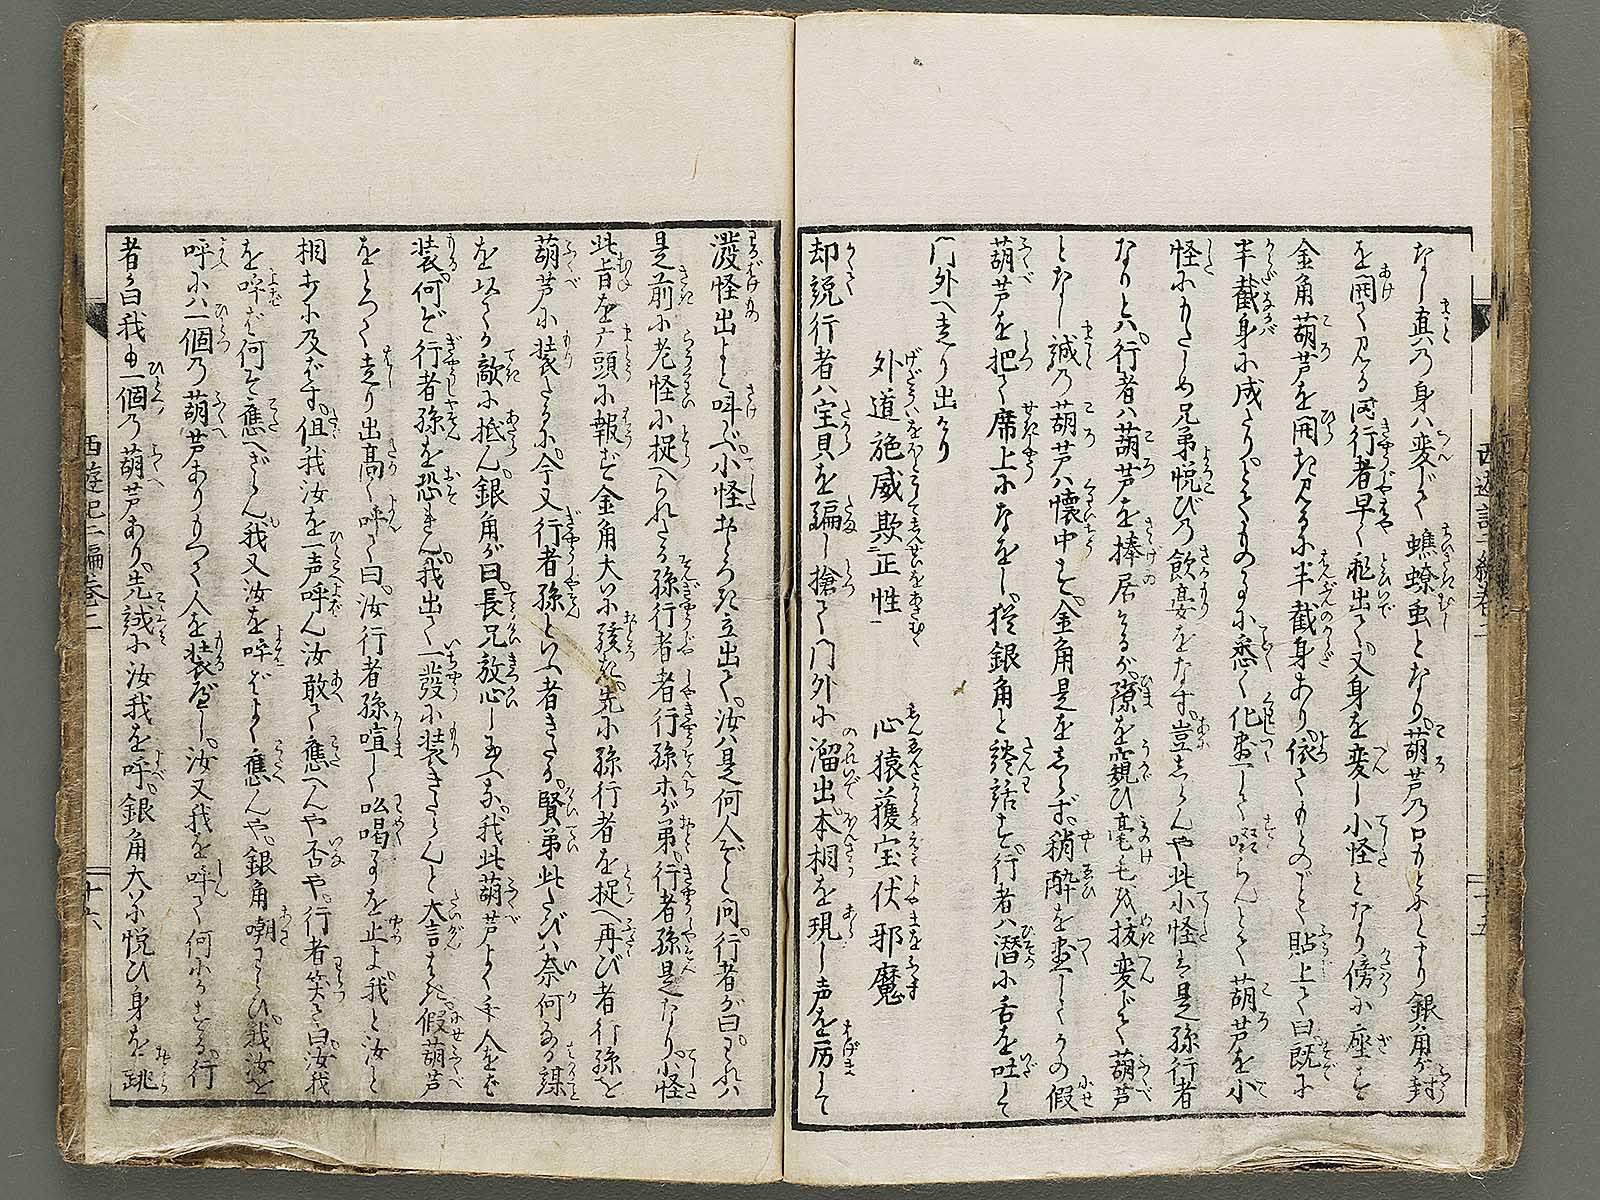 なし真の身ハ変じて蟭蟟虫となり葫芦の口もとにとまり銀角が封
を開て見る間行者早く飛出て又身を変し小怪となり傍に座す
金角葫芦を開き見るに半截身あり依てもとのごとく貼上て曰既に
半截身に成たりとものに悉く化尽して葫芦を小
怪にもたしめ兄弟悦びの飲宴をなす豈しらんや此小怪は是孫行者
なりとハ行者ハ葫芦を捧居けるが隙を窺ひ毫毛を抜変じて葫芦
となし誠の葫芦ハ懐中す金角是をしらず稍酔を尽してかの假
葫芦を把て席上になをし銀角と談話す行者ハ潜に舌を吐して
門外へ走り出けり
外道施威欺正性　心猿獲宝伏邪魔
却説行者ハ宝貝を騙し搶て門外に溜出本相を現し声を厉して
潑怪出よと叫ぶ小怪おどろき立出て汝ハ是何人ぞと问行者が曰われハ
是前に老怪に捉へられたる孫行者者行孫ホが弟行者孫是なり小怪
此旨を广頭に報ず金角大に駭き先に孫行者を捉へ再び者行孫を
葫芦に装たるに今又行者孫といふ者きたる賢弟此たびハ奈何なる謀
を以てか敵に抵ん銀角が曰長兄放心し玉へ我此葫芦よく千人をも
装何ど行者孫を恐れん我出て一發に装きたらんと大言をはき假葫芦
をとつて走り出高く呼て曰汝行者孫喧しく吆喝するを止よ我と汝と
相打に及ばず但我汝を一声呼ん汝敢て應へんや否や行者笑て曰汝我
を呼ばゞ何ぞ應へざらん我又汝を呼ばゞよく應んや銀角嘲わらひ我汝を
呼に一個の葫芦ありもつて人を装べし汝又我を呼て何にかする行
者曰我も一個の葫芦あり先試に汝我を呼べ銀角大に悦ひ身を跳
西遊記二編巻二
十六